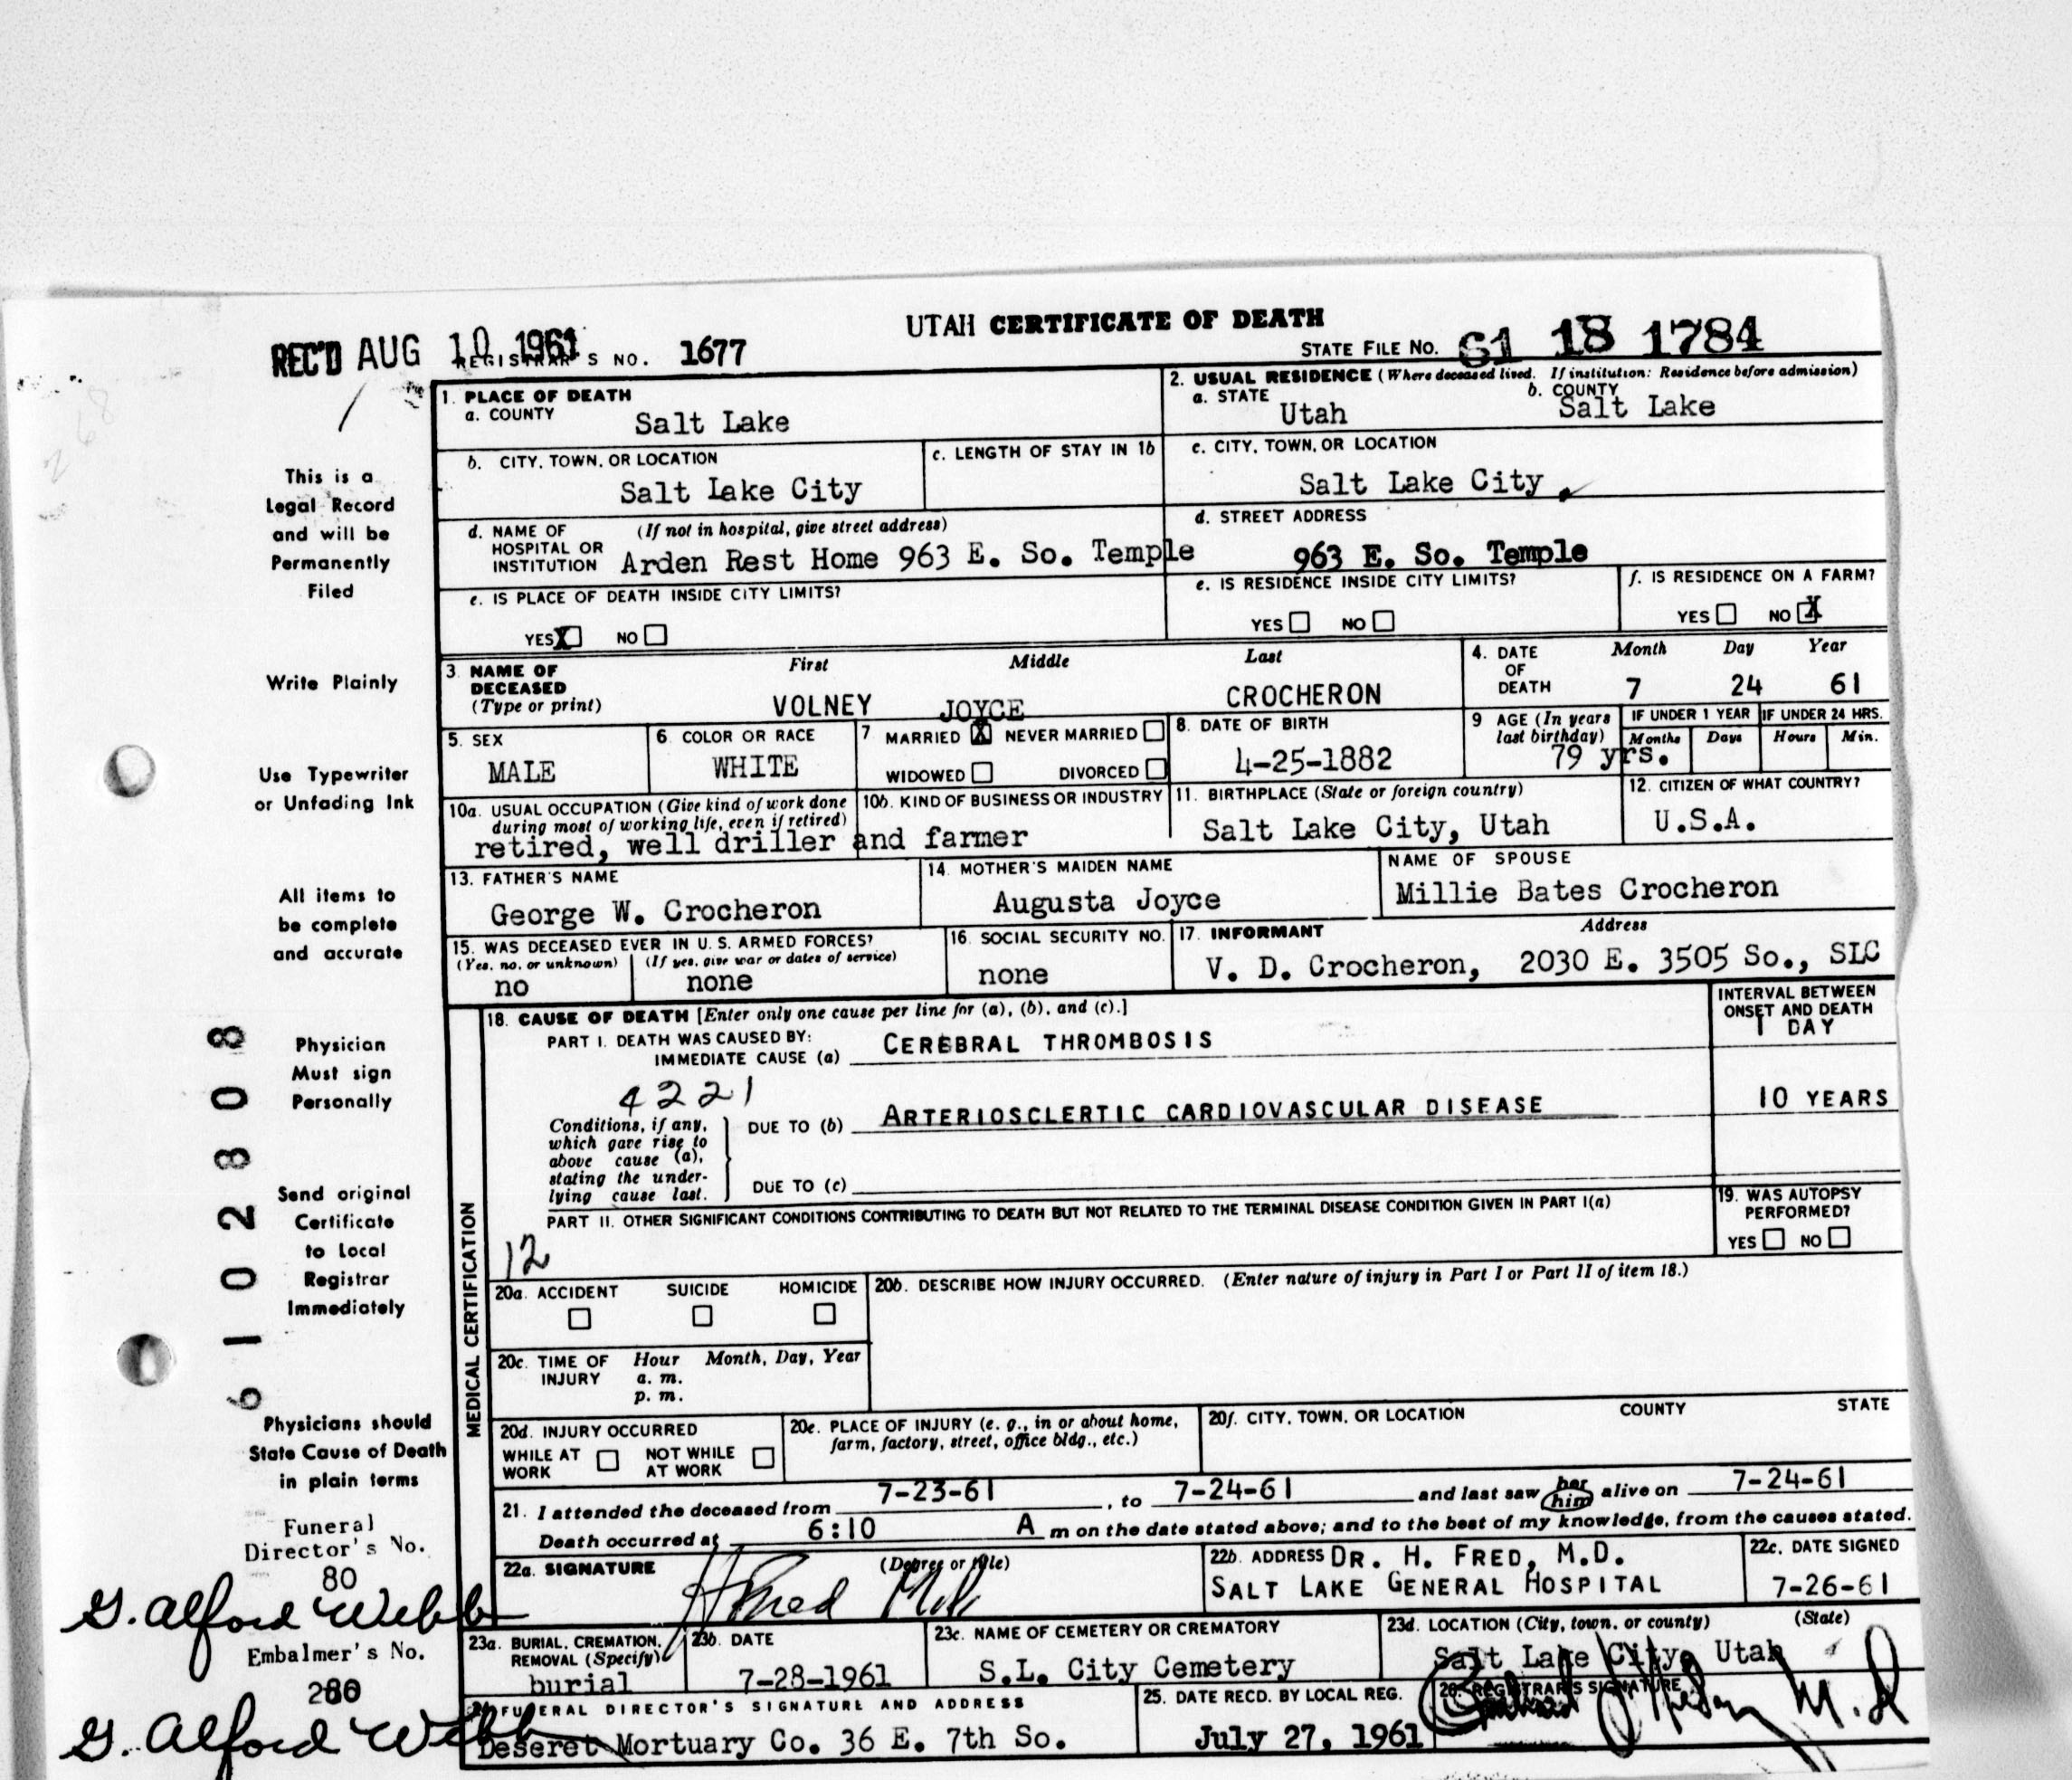 UTAH CERTIFICATE OF DEATH
REC'D AUG 10 1961 REGISTRAR'S NO. 1677
STATE FILE NO. 61 18 1784
1. PLACE OF DEATH
a. COUNTY Salt Lake
2. USUAL RESIDENCE (Where deceased lived. If institution: Residence before admission)
a. STATE Utah b. COUNTY Salt Lake
b. CITY, TOWN, OR LOCATION Salt Lake City
c. LENGTH OF STAY IN 1b
c. CITY, TOWN, OR LOCATION Salt Lake City
d. NAME OF HOSPITAL OR INSTITUTION (If not in hospital, give street address) Arden Rest Home 963 E. So. Temple
d. STREET ADDRESS 963 E. So. Temple
e. IS PLACE OF DEATH INSIDE CITY LIMITS?
YES X NO
e. IS RESIDENCE INSIDE CITY LIMITS?
YES NO
f. IS RESIDENCE ON A FARM?
YES NO X
3. NAME OF DECEASED (Type or print)
First Middle Last
VOLNEY JOYCE CROCHERON
4. DATE OF DEATH Month Day Year
7 24 61
5. SEX MALE
6. COLOR OR RACE WHITE
7 MARRIED X NEVER MARRIED
WIDOWED DIVORCED
8. DATE OF BIRTH 4-25-1882
9 AGE (In years last birthday) 79 yrs.
IF UNDER 1 YEAR IF UNDER 24 HRS.
Months Days Hours Min.
10a. USUAL OCCUPATION (Give kind of work done during most of working life, even if retired)
10b. KIND OF BUSINESS OR INDUSTRY
retired, well driller and farmer
11. BIRTHPLACE (State or foreign country)
Salt Lake City, Utah
12. CITIZEN OF WHAT COUNTRY?
U.S.A.
13. FATHER'S NAME
George W. Crocheron
14. MOTHER'S MAIDEN NAME
Augusta Joyce
NAME OF SPOUSE
Millie Bates Crocheron
15. WAS DECEASED EVER IN U.S. ARMED FORCES?
(Yes, no. or unknown) (If yes, give war or dates of service)
no none
16. SOCIAL SECURITY NO.
none
17. INFORMANT Address
V. D. Crocheron, 2030 E. 3505 So., SLC
MEDICAL CERTIFICATION
18. CAUSE OF DEATH [Enter only one cause per line for (a), (b), and (c).]
INTERVAL BETWEEN ONSET AND DEATH
PART I. DEATH WAS CAUSED BY:
IMMEDIATE CAUSE (a) CEREBRAL THROMBOSIS 1 DAY
4221
Conditions, if any, which gave rise to above cause (a), stating the underlying cause last.
DUE TO (b) ARTERIOSCLERTIC CARDIOVASCULAR DISEASE 10 YEARS
DUE TO (c)
PART II. OTHER SIGNIFICANT CONDITIONS CONTRIBUTING TO DEATH BUT NOT RELATED TO THE TERMINAL DISEASE CONDITION GIVEN IN PART I(a)
12
19. WAS AUTOPSY PERFORMED?
YES NO
20a. ACCIDENT SUICIDE HOMICIDE
20b. DESCRIBE HOW INJURY OCCURRED. (Enter nature of injury in Part I or Part II of item 18.)
20c. TIME OF INJURY Hour Month, Day, Year
a. m.
p. m.
20d. INJURY OCCURRED
WHILE AT WORK NOT WHILE AT WORK
20e. PLACE OF INJURY (e. g., in or about home, farm, factory, street, office bldg., etc.)
20f. CITY, TOWN, OR LOCATION COUNTY STATE
21. I attended the deceased from 7-23-61, to 7-24-61 and last saw her him alive on 7-24-61
Death occurred at 6:10 A m on the date stated above; and to the best of my knowledge, from the causes stated.
22a. SIGNATURE (Degree or title)
H Fred
22b. ADDRESS DR. H. FRED, M.D.
SALT LAKE GENERAL HOSPITAL
22c. DATE SIGNED
7-26-61
23a. BURIAL, CREMATION, REMOVAL (Specify)
burial
23b. DATE
7-28-1961
23c. NAME OF CEMETERY OR CREMATORY
S.L. City Cemetery
23d. LOCATION (City, town, or county) (State)
Salt Lake City, Utah
24. FUNERAL DIRECTOR'S SIGNATURE AND ADDRESS
Deseret Mortuary Co. 36 E. 7th So.
25. DATE RECD. BY LOCAL REG.
July 27, 1961
26. REGISTRAR'S SIGNATURE
M.D
This is a
Legal Record
and will be
Permanently
Filed
Write Plainly
Use Typewriter
or Unfading Ink
All items to
be complete
and accurate
Physician
Must sign
Personally
Send original
Certificate
to Local
Registrar
Immediately
Physicians should
State Cause of Death
in plain terms
6102808
Funeral
Director's No.
80
G. Alford Webb
Embalmer's No.
280
G. Alford Webb